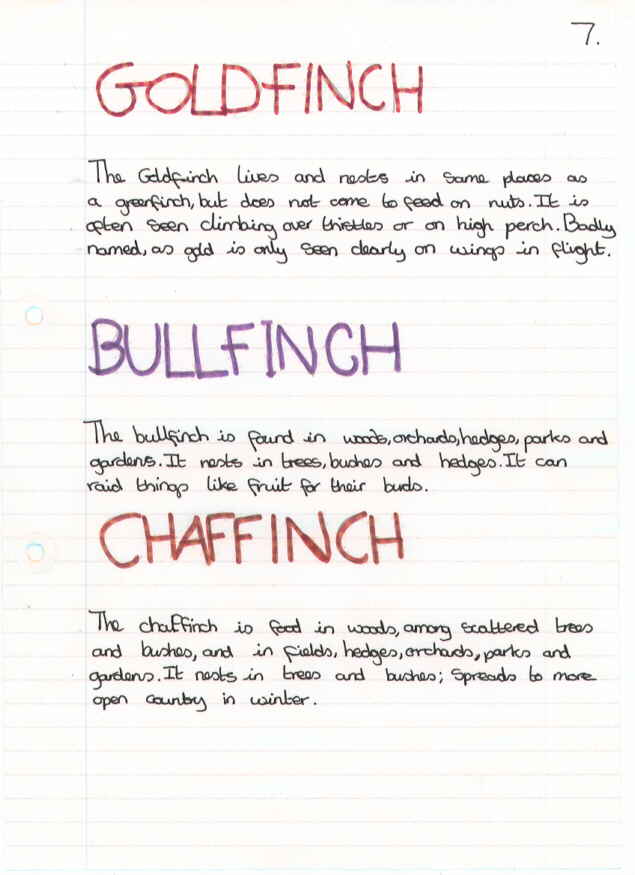 7.
GOLDFINCH
The Goldfinch lives and nests in same places as
a greenfinch, but does not come to feed on nuts. It is
often seen climbing over thistles or on high perch. Badly
named, as gold is only seen clearly on wings in flight.
BULLFINCH
The bullfinch is found in woods, orchards, hedges, parks and
gardens. It nests in trees, bushes and hedges. It can
raid things like fruit for their buds.
CHAFFINCH
The chaffinch is food in woods, among scattered trees
and bushes, and in fields, hedges, orchards, parks and
gardens. It nests in trees and bushes; spreads to more
open country in winter.